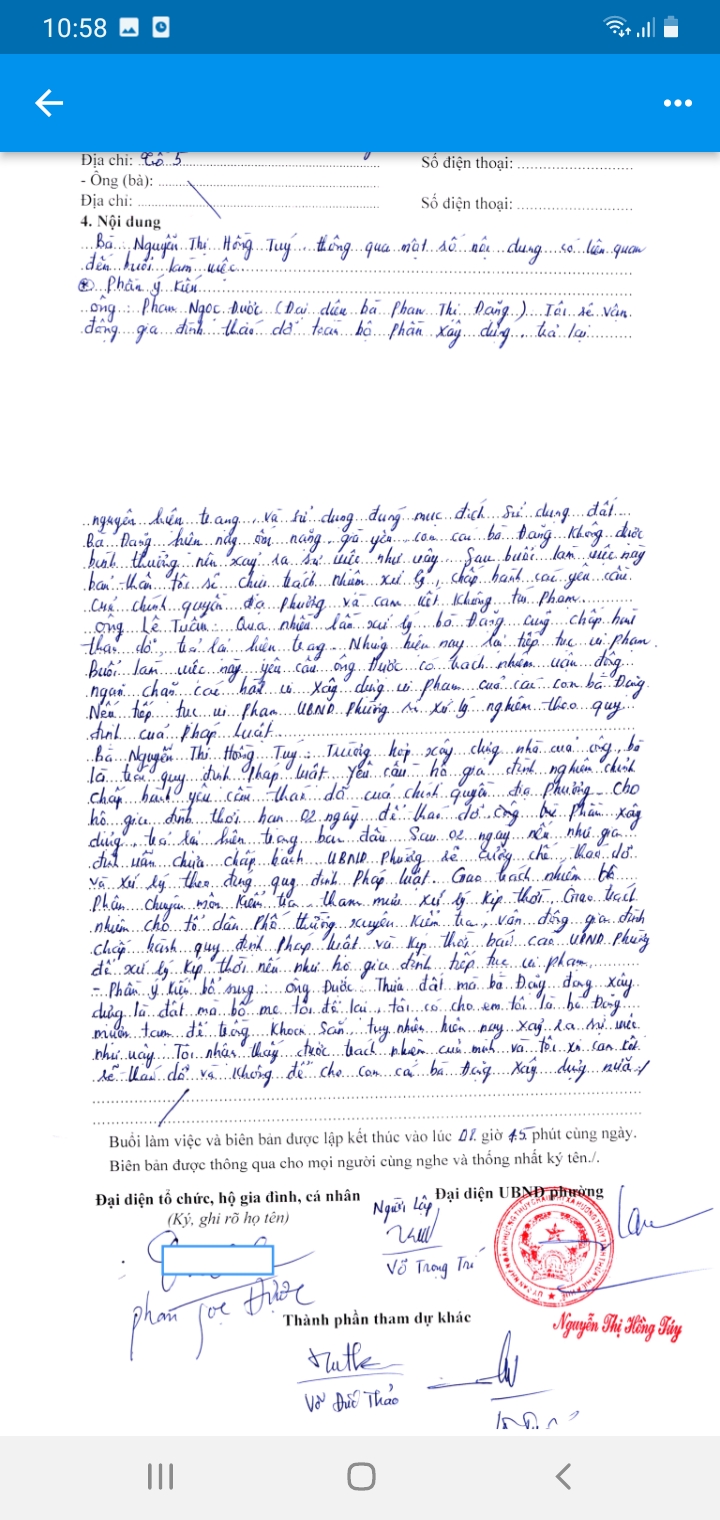 10:58
Địa chỉ: Tổ 5 Số điện thoại:
- Ông (bà):
Địa chỉ: Số điện thoại:
4. Nội dung
Bà: Nguyễn Thị Hồng Tuý, thông qua một số nội dung có liên quan
đến buổi làm việc
* Phần ý kiến
ông: Phan Ngọc Được (Đại diện bà Phan Thị Đang.) Tôi sẽ vận
động gia đình tháo dỡ toàn bộ phần xây dựng, trả lại
nguyên hiện trạng, và sử dụng đúng mục đích sử dụng đất.
Bà Đang hiện nay ốm nặng, già yếu, con cái bà Đang không được
bình thường nên xảy ra sự việc như vậy. Sau buổi làm việc này
bản thân tôi sẽ chịu trách nhiệm xử lý, chấp hành các yêu cầu
của chính quyền địa phương và cam kết không tái phạm.
ông Lê Tuấn: Qua nhiều lần xử lý bà Đang cũng chấp hành
tháo dỡ, trả lại hiện trạng. Nhưng hiện nay lại tiếp tục vi phạm.
Buổi làm việc này yêu cầu ông Được có trách nhiệm vận động
ngăn chặn các hành vi xây dựng vi phạm của các con bà Đang.
Nếu tiếp tục vi phạm UBND Phường sẽ xử lý nghiêm theo quy
định của pháp luật.
Bà Nguyễn Thị Hồng Tuý: Trường hợp xây dựng nhà của ông, bà
là trái quy định pháp luật. Yêu cầu hộ gia đình nghiêm chỉnh
chấp hành yêu cầu tháo dỡ của chính quyền địa phương. cho
hộ gia đình thời hạn 02 ngày để tháo dỡ phần xây
dựng, trả lại hiện trạng ban đầu. Sau 02 ngày nếu như gia
đình vẫn chưa chấp hành UBND Phường sẽ cưỡng chế, tháo dỡ
và xử lý theo đúng quy định pháp luật. Giao trách nhiệm bộ
phận chuyên môn kiểm tra, tham mưu xử lý kịp thời, Giao trách
nhiệm cho tổ dân phố thường xuyên kiểm tra, vận động gia đình
chấp hành quy định pháp luật và kịp thời báo cáo UBND Phường
để xử lý kịp thời nếu như hộ gia đình tiếp tục vi phạm.
- Phần ý kiến bổ sung: ông Được: Thửa đất mà bà Đang đang xây
dựng là đất mà bố mẹ tôi để lại, tôi có cho em tôi là bà Đang
mượn tạm để trồng khoai sắn, tuy nhiên hiện nay xảy ra sự việc
như vậy. Tôi nhận thấy được trách nhiệm của mình và tôi xin cam kết
sẽ tháo dỡ và không để cho con cái bà Đang xây dựng nữa./
Buổi làm việc và biên bản được lập kết thúc vào lúc 08 giờ 45 phút cùng ngày.
Biên bản được thông qua cho mọi người cùng nghe và thống nhất ký tên./.
Đại diện tổ chức, hộ gia đình, cá nhân Người Lập Đại diện UBND phường
(Ký, ghi rõ họ tên)
Võ Trọng Trí
Phan Ngọc Được
Thành phần tham dự khác
Nguyễn Thị Hồng Túy
Võ Đức Thảo